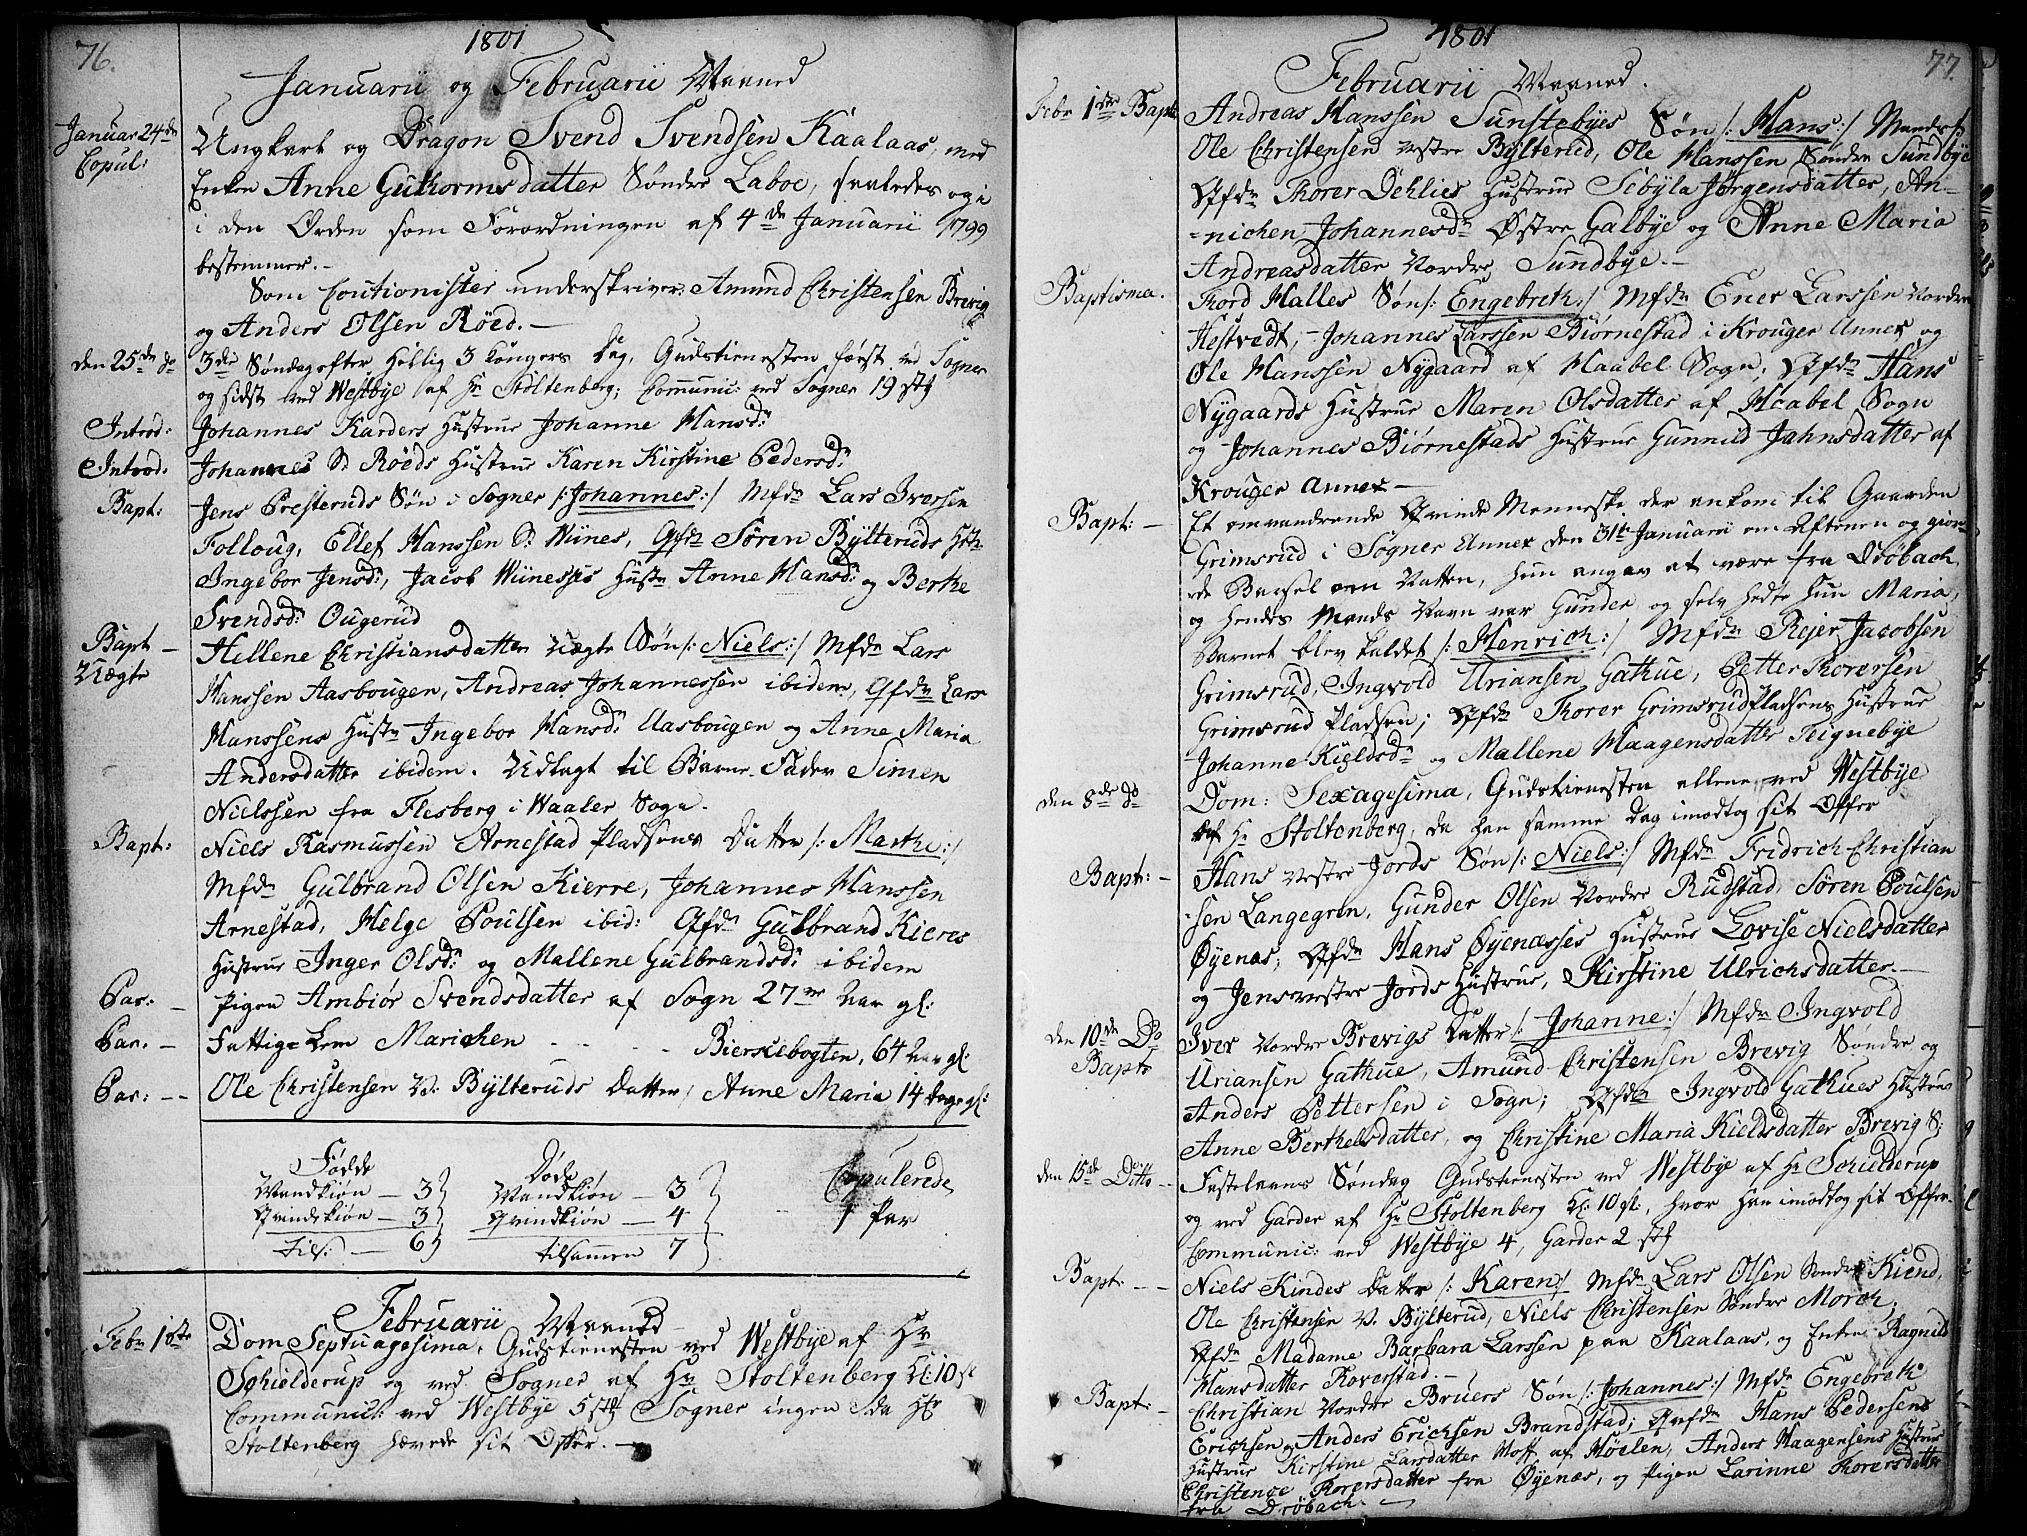 76.
1801
Januarii og Februarii Maaned
Januar 24de
Copul:
Ungkarl og Dragon Svend Svendsen Kaalaas, med
Enken Anne Guthorms datter Søndre Laboe, saaledes og i
i den Orden som Forordningen af 4de Januarii 1799
bestemmer.-
Som Coutionister underskriver: Amund Christensen Brevig
og Anders Olsen Røed.-
den 25de do
3die Søndag efter Hellig 3 Kongers Dag, Gudstienesten først ved Sogner
og sidst ved Westbye af Hr Stoltenberg; Communic: ved Sogner 19 stk
Introd:
Johannes Karders Hustrue Johanne Hansdr
Introd:
Johannes S: Røeds Hustrue Karen Kirstine Pedersdr
Bapt:
Jens Presteruds Søn i Sogner /:Johannes:/ Mfdr Lars Iversen
Folloug, Ellef Hanssen S: Wiines, Qfdr Søren Bylteruds Hstr
Ingebor Jensdr, Jacob Wiinesses Hustr Anne Hansdr og Berthe
Svendsdr Ougerud
Bapt -
Uægte
Hellene Christiansdatter Uægte Søn /:Niels:/ Mfdr Lars
Hanssen Aasbougen, Andreas Johannessen ibidem, Qfdr Lars
Hanssens Hustr Ingebor Hansdr Aasbougen og Anne Maria
Andersdatter ibidem. Udlagt til Barne-Fader Simen
Nielssen fra Flesberg i Waaler Sogn.
Bapt:
Niels Rasmussen Arnestad Pladsens Datter /:Marthe:/
Mfdr Gulbrand Olsen Kierre, Johannes Hanssen
Arnestad, Helge Poulsen ibid: Qfdr Gulbrand Kieres
Hustrue Inger Olsdr og Mallene Gulbrandsdr ibidem
Par: -
Pigen Ambiør Svendsdatter af Sogn 27 Aar gl:
Par. -
Fattig-Lem Marichen - - - - Bierkebogten, 64 Aar gl:
Par: --
Ole Christensen V: Bylteruds Datter, Anne Maria 14 Dage gl:
Fødde
Mandkiøn - 3
Qvindekiøn - 3
tils: - 6
Døde
Mandkiøn - 3
Qvindkiøn - 4
tilsammen 7
Copulerede
1 Par
Februarii Maaned
Febr 1ste
Dom Septuagesima, Gudstienesten ved Westbye af Hr
Schielderup og ved Sogner af Hr Stoltenberg Kl: 10 sl
Communic: ved Westbye 5 stk Sogner ingen da Hr
Stoltenberg hævede sit Offer.-
1801
77.
Februarii Maaned.
Febr 1ste Bapt
Andreas Hanssen Sunstebyes Søn /:Hans:/ Mandsf:
Ole Christensen vestre Bylterud, Ole Hanssen Søndre Sundbye
Qfdr Thorer Dehlies Hustrue Sebyla Jørgensdatter, An-
-nichen Johannesdr Østre Galbye og Anne Maria
Andreasdatter Nordre Sundbye.-
Baptisma.
Thord Halles Søn /:Engebreth:/ Mfdr Ener Larssen Nordre
Hestvedt, Johannes Larssen Biørnestad i Krouger Annex og
Ole Hanssen Nygaard af Haabel Sogn; Qfdr Hans
Nygaards Hustrue Maren Olsdatter af Haabel Sogn
og Johannes Biørnestads Hustrue Gunnild Jahnsdatter af
Krouger Annex -
Bapt: -
Et omvandrende Qvinde Menneske der ankom til Gaarden
Grimsrud i Sogner Annex den 31te Januarii om Aftenen og gior-
de Barsel om Natten, hun angav at være fra Drøbach,
og hendes Mands Navn var Gunder og selv hedte hun Maria,
Barnet blev kaldet /:Henrich:/ Mfdr Rejer Jacobsen
Grimsrud, Ingvold Uriansen Gathue, Petter Thorersen
Grimsrud Pladsen; Qfdr Thorer Grimsrudpladsens Hustrue
Johanne Kieldsdr og Mallene Haagensdatter Teignebye
den 8de do
Dom: Sexagesima, Gudstienesten allene ved Westbye
af Hr Stoltenberg, da han samme dag imodtog sit Offer
Bapt: -
Hans vestre Jords Søn /:Niels:/ Mfdr Fridrich Christian
-sen Langegren, Gunder Olsen Nordre Rudstad, Søren Poulsen
Øyenæs, Qfdr Hans Øyenæsses Hustrue Lovise Nielsdatter
og Jens vestre Jords Hustrue, Kirstine Ulrichsdatter.-
den 10de Do
Bapt
Iver Nordre Brevigs Datter /:Johanne:/ Mfdr Ingvold
Uriansen Gathue, Amund Christensen Brevig Søndre og
Anders Pettersen i Sogn; Qfdr Ingvold Gathues Hustrue
Anne Berthelsdatter, og Christine Maria Kieldsdatter Brevig S:
den 15de Ditto -
Fastelavns Søndag Gudstienesten ved Westbye af Hr Schielderup
og ved Garder af Hr Stoltenberg Kl: 10 sl:, hvor han imodtog sit Offer.
Communic: ved Westbye 4, Garder 2 stk
Bapt. - -
Niels Kindes Datter /:Karen:/ Mfdr Lars Olsen Søndre Kiend,
Ole Christensen V. Bylterud, Niels Christensen Søndre Morch,
Qfdr Madame Barbara Larssen paa Kaalaas, og Enken Ragnild
Hansdatter Roverstad.-
Bapt: -
Christian Nordre Bruers Søn /:Johannes:/ Mfdr Engebreth
Erichsen, Anders Erichsen Brandstad; Qvfdr Hans Pedersens
Hustrue Kirstine Larsdatter Moss af Høelen, Anders Haagensens Hustrue
Christence Thorersdatter fra Øyenæs, og Pigen Larinne Thorersdatter
fra Drøbach.-